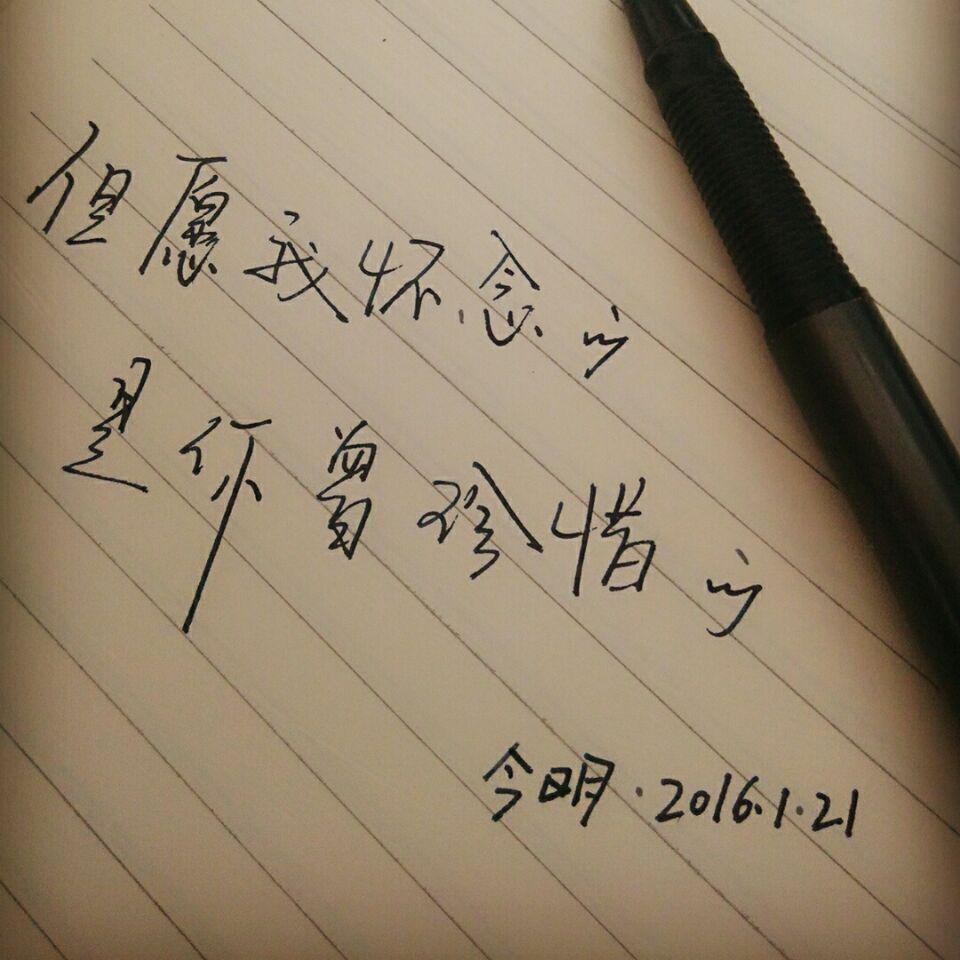 但愿我怀念的
是你曾珍惜的
今明·2016.1.21